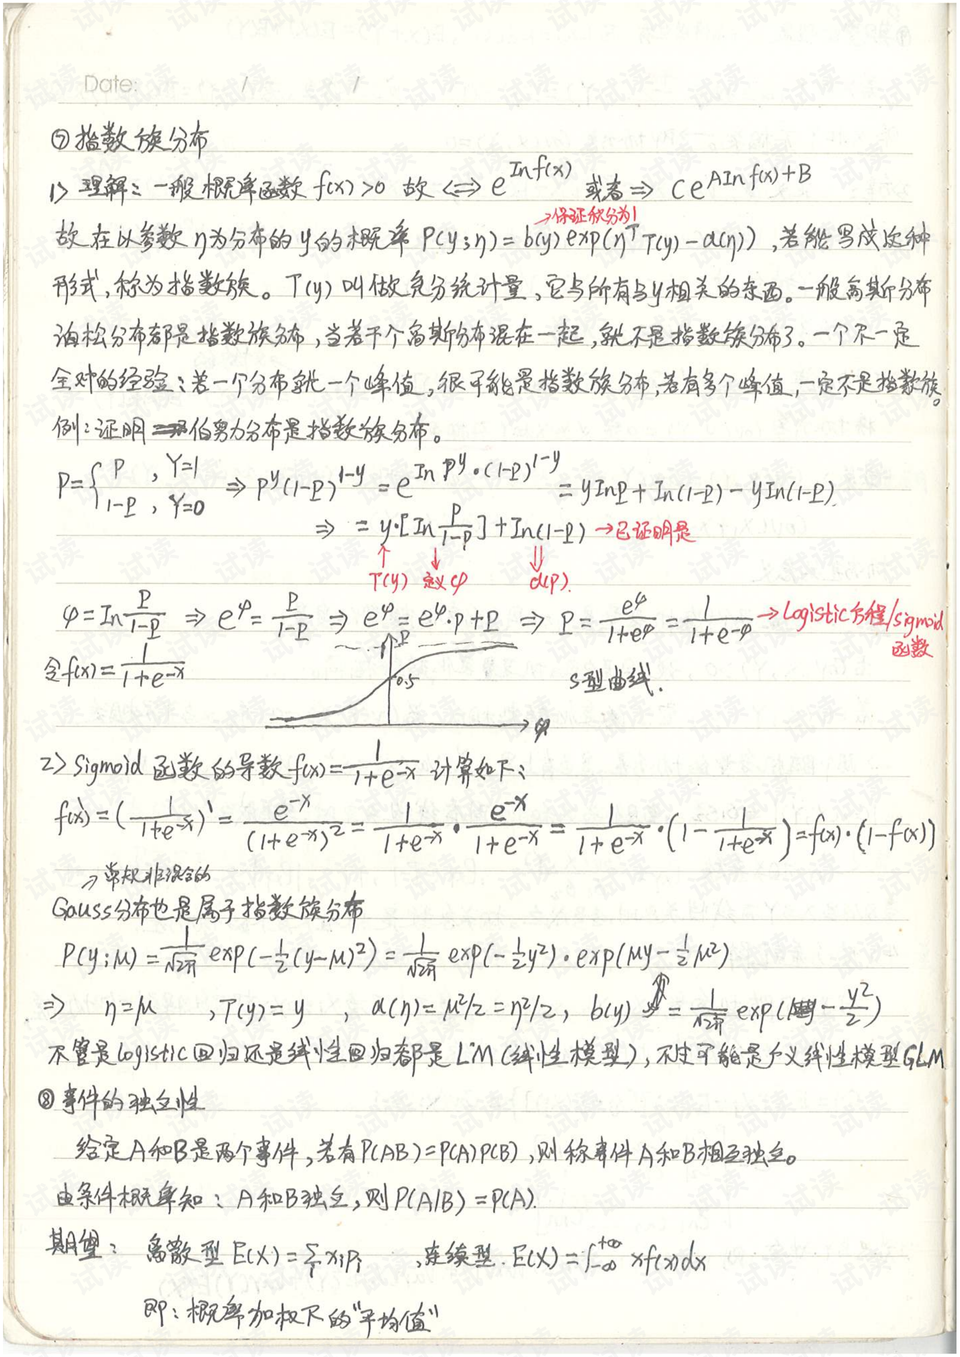 Date: / /
⑦指数族分布
1> 理解：一般概率函数 f(x)>0 故 <=> e^{ln f(x)} 或者 => c e^{A ln f(x)+B}
→保证积分为1
故在以参数 η为分布的 y的概率 P(y;η)=b(y)exp(η^T T(y)-α(η))，若能写成这种
形式，称为指数族。T(y) 叫做充分统计量，它与所有与y相关的东西。一般高斯分布
泊松分布都是指数族分布，当若干个高斯分布混在一起，就不是指数族分布了。一个不一定
全对的经验：若一个分布就一个峰值，很可能是指数族分布，若有多个峰值，一定不是指数族。
例：证明 伯努力分布是指数族分布。
P={P , Y=1; 1-P , Y=0 => P^y(1-P)^{1-y} = e^{ln P^y·(1-P)^{1-y}} = ylnP+ln(1-P)-yln(1-P).
=> = y·[ln P/(1-P)]+ln(1-P) →已证明是
T(y) 定义φ α(p).
φ=ln P/(1-P) => e^φ = P/(1-P) => e^φ=e^φ·p+P => P = e^φ/(1+e^φ) = 1/(1+e^{-φ}) →Logistic方程/sigmoid
函数
令f(x)=1/(1+e^{-x})
P
0.5
φ
S型曲线.
2> Sigmoid 函数的导数 f(x)=1/(1+e^{-x}) 计算如下：
f'(x)=(1/(1+e^{-x}))' = e^{-x}/(1+e^{-x})^2 = 1/(1+e^{-x}) · e^{-x}/(1+e^{-x}) = 1/(1+e^{-x}) · (1-1/(1+e^{-x}))=f(x)·(1-f(x))
→常规非混合的
Gauss分布也是属于指数族分布
P(y;μ)=1/√2π exp(-1/2(y-μ)^2)=1/√2π exp(-1/2y^2)·exp(μy-1/2μ^2)
=> η=μ ，T(y)=y ，α(η)=μ^2/2=η^2/2，b(y) = 1/√2π exp(-y^2/2)
不管是logistic回归还是线性回归都是LM(线性模型)，不过可能是广义线性模型GLM
⑧事件的独立性
给定A和B是两个事件，若有P(AB)=P(A)P(B)，则称事件A和B相互独立。
由条件概率知：A和B独立，则P(A|B)=P(A).
期望：离散型 E(X)=∑_i x_i p_i ，连续型. E(X)=∫_{-∞}^{+∞} xf(x)dx
即：概率加权下的"平均值"